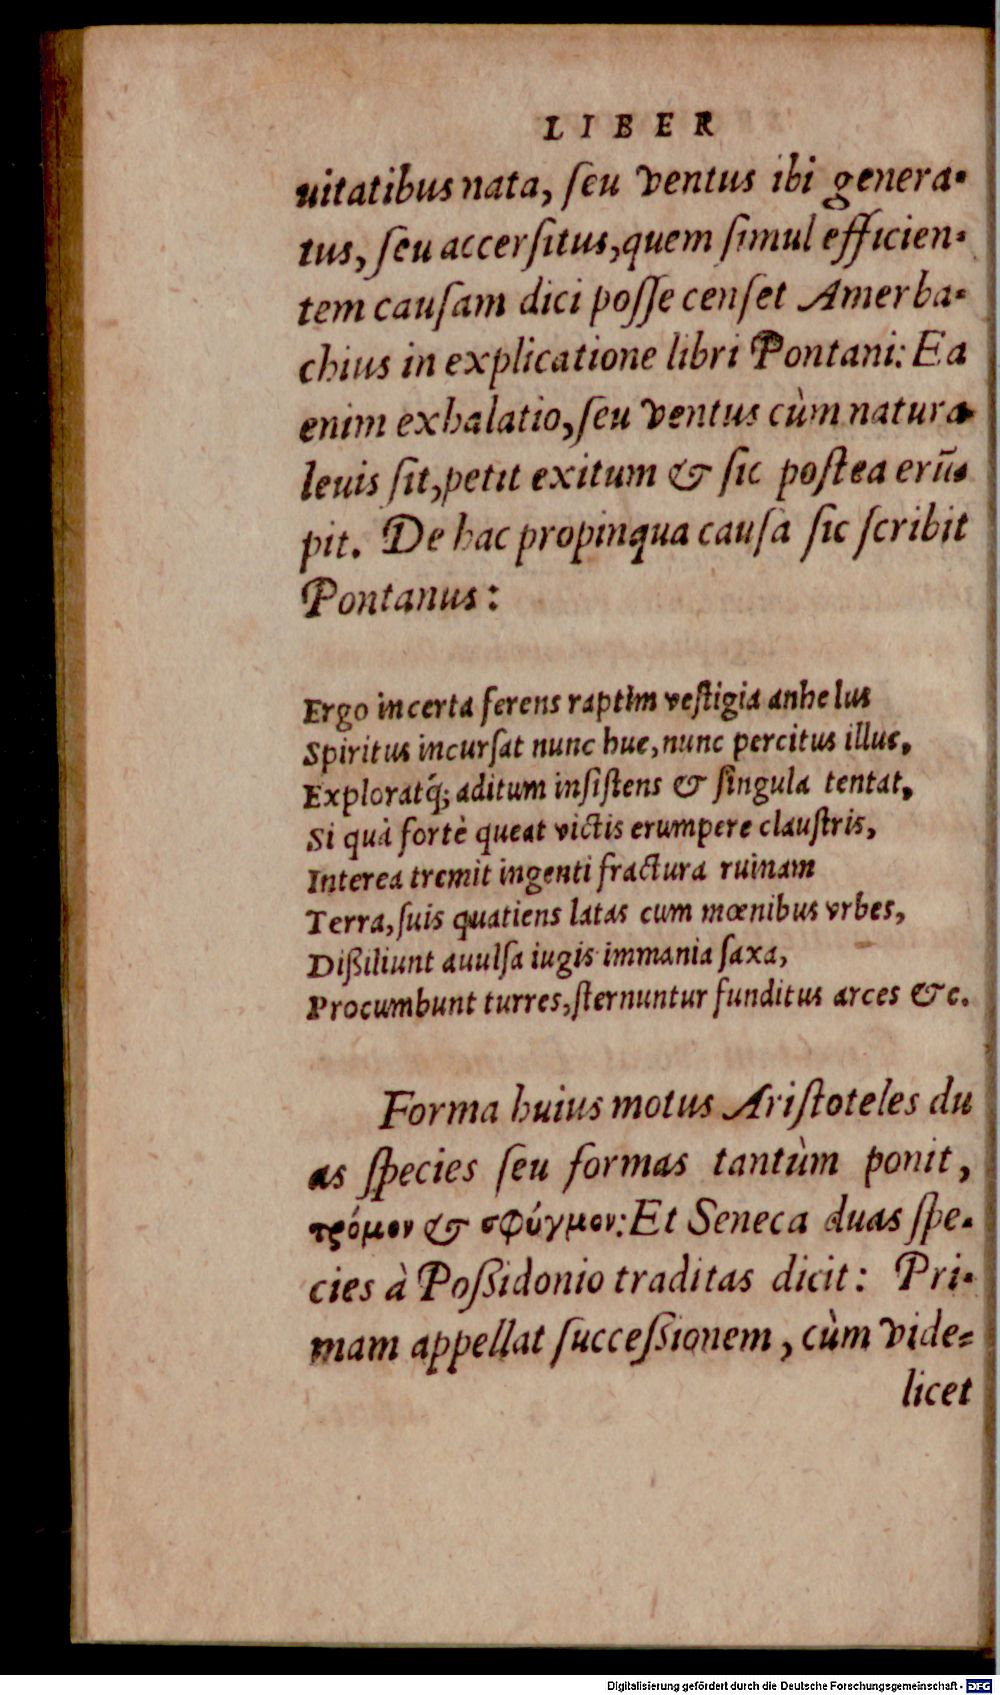 LIBER
uitatibus nata, ſeu ventus ibi genera-
tus, ſeu accerſitus, quem ſimul efficien-
tem cauſam dici poſſe cenſet Amerba-
chius in explicatione libri Pontani: Ea
enim exhalatio, ſeu ventus cùm natura
leuis ſit, petit exitum & ſic poſtea erū-
pit. De hac propinqua cauſa ſic ſcribit
Pontanus:
Ergo incerta ferens raptim veſtigia anhelus
Spiritus incurſat nunc huc, nunc percitus illuc,
Exploratq́; aditum inſiſtens & ſingula tentat,
Si quà fortè queat victis erumpere clauſtris,
Interea tremit ingenti fractura ruinam
Terra, ſuis quatiens latas cum mœnibus vrbes,
Dißiliunt auulſa iugis immania ſaxa,
Procumbunt turres, ſternuntur funditus arces &c.
Forma huius motus Ariſtoteles du
as ſpecies ſeu formas tantùm ponit,
τρόμον & σφύγμον: Et Seneca duas ſpe-
cies à Poßidonio traditas dicit: Pri-
mam appellat ſucceßionem, cùm vide-
licet
Digitalisierung gefördert durch die Deutsche Forschungsgemeinschaft - DFG